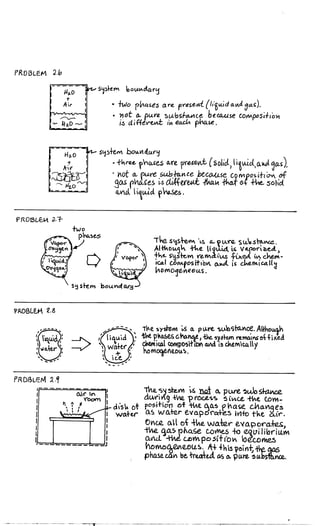 PROBLEM 2.6
system boundary
H2O
+
Air
H2O
• two phases are present (liquid and gas).
• not a pure substance because composition
is different in each phase.
system boundary
H2O
+
Air
H2O
• three phases are present (solid, liquid, and gas).
• not a pure substance because composition of
gas phases is different than that of the solid
and liquid phases.
PROBLEM 2.7
two
phases
Vapor
Oxygen
liquid
Oxygen
vapor
liquid
system boundary
The system is a pure substance.
Although the liquid is vaporized,
the system remains fixed in chem-
ical composition and is chemically
homogeneous.
PROBLEM 2.8
liquid
water
liquid
water
+
ice
The system is a pure substance. Although
the phases change, the system remains of fixed
chemical composition and is chemically
homogeneous.
PROBLEM 2.9
air in
room
dish of
water
The system is not a pure substance
during the process since the com-
position of the gas phase changes
as water evaporates into the air.
Once all of the water evaporates,
the gas phase comes to equilibrium
and the composition becomes
homogeneous. At this point, the gas
phase can be treated as a pure substance.